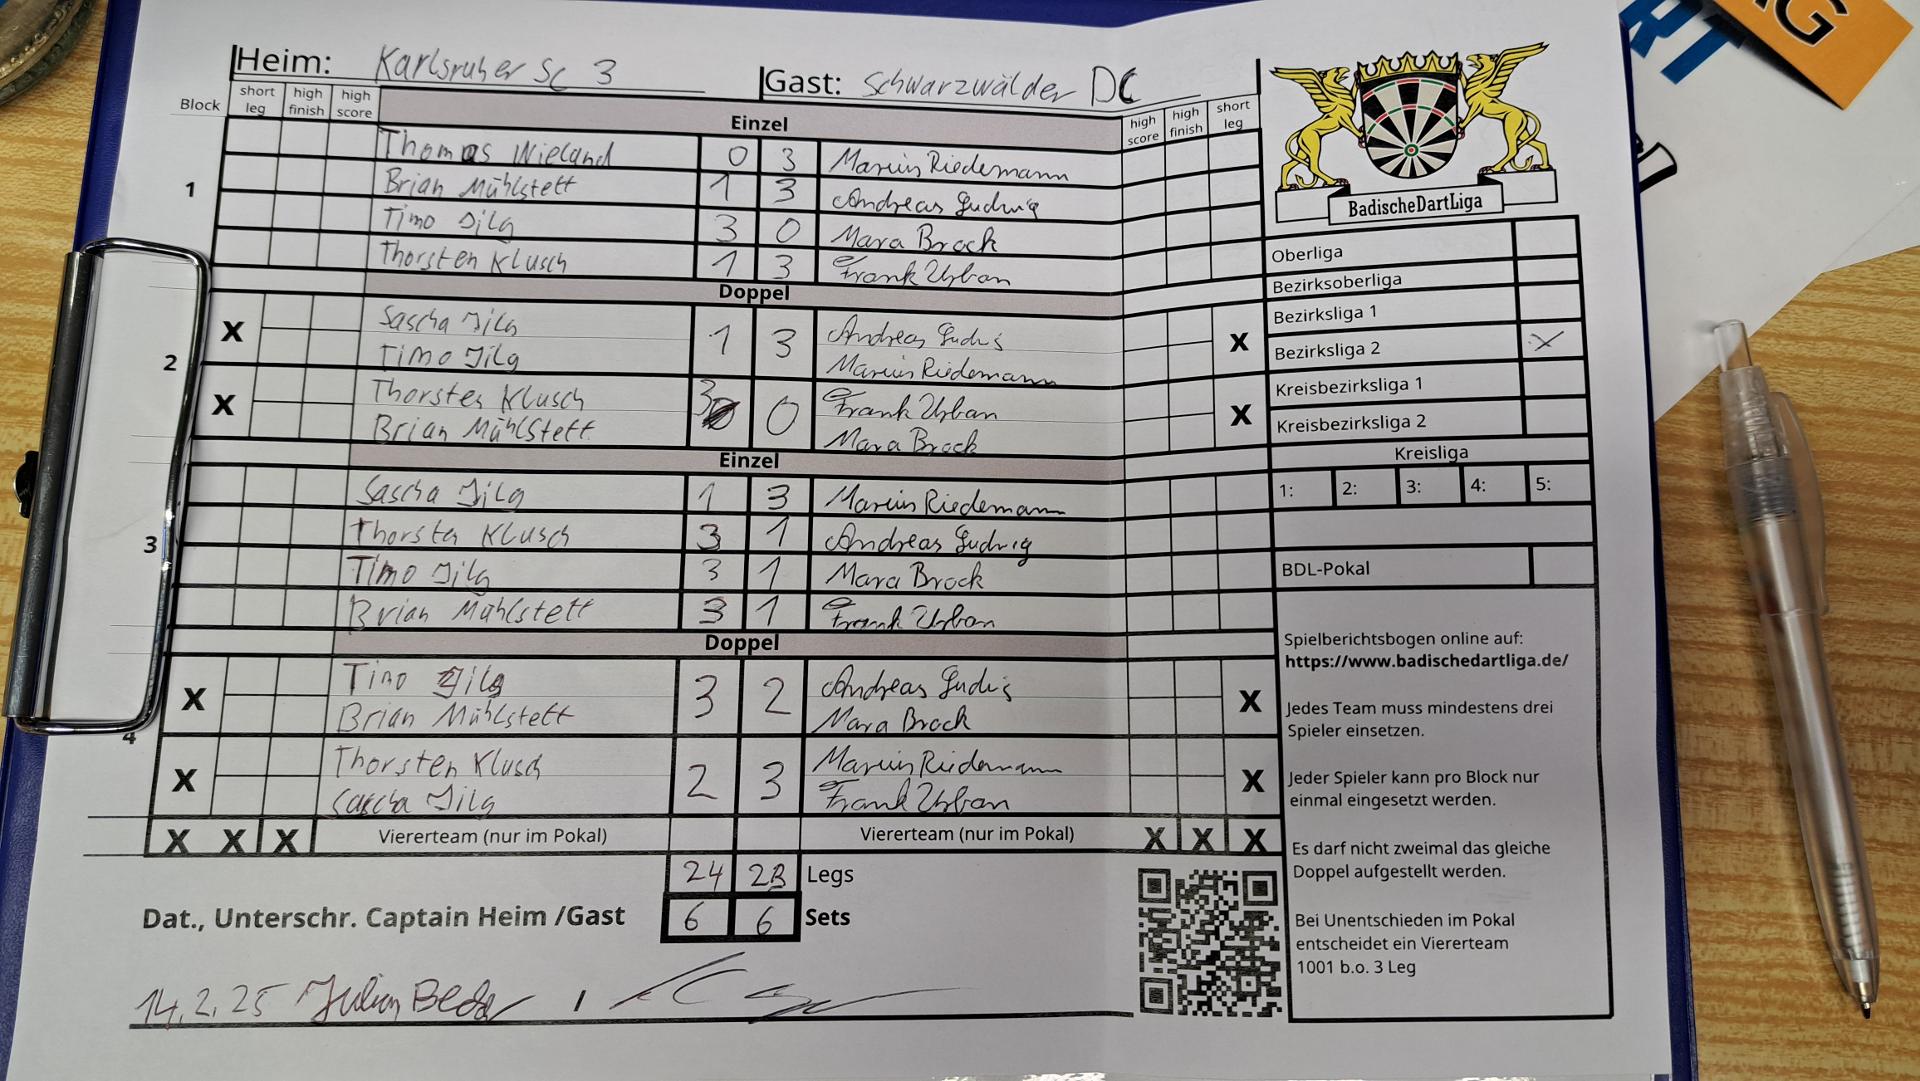 Heim: Karlsruher SC 3 Gast: Schwarzwälder DC
Block short leg high finish high score Einzel high score high finish short leg
1
Thomas Wieland 0 3 Marius Riedemann
Brian Mühlstett 1 3 Andreas Ludwig
Timo Jilg 3 0 Mara Brock
Thorsten Klusch 1 3 Frank Urban
Doppel
2
X Sascha Jilg 1 3 Andreas Ludwig X
Timo Jilg Marius Riedemann
X Thorsten Klusch 3 0 Frank Urban X
Brian Mühlstett Mara Brock
Einzel
3
Sascha Jilg 1 3 Marius Riedemann
Thorsten Klusch 3 1 Andreas Ludwig
Timo Jilg 3 1 Mara Brock
Brian Mühlstett 3 1 Frank Urban
Doppel
4
X Timo Jilg 3 2 Andreas Ludwig X
Brian Mühlstett Mara Brock
X Thorsten Klusch 2 3 Marius Riedemann X
Sascha Jilg Frank Urban
X X X Viererteam (nur im Pokal) Viererteam (nur im Pokal) X X X
24 23 Legs
Dat., Unterschr. Captain Heim /Gast 6 6 Sets
14.2.25 /
BadischeDartLiga
Oberliga
Bezirksoberliga
Bezirksliga 1
Bezirksliga 2 X
Kreisbezirksliga 1
Kreisbezirksliga 2
Kreisliga
1: 2: 3: 4: 5:
BDL-Pokal
Spielberichtsbogen online auf:
https://www.badischedartliga.de/
Jedes Team muss mindestens drei
Spieler einsetzen.
Jeder Spieler kann pro Block nur
einmal eingesetzt werden.
Es darf nicht zweimal das gleiche
Doppel aufgestellt werden.
Bei Unentschieden im Pokal
entscheidet ein Viererteam
1001 b.o. 3 Leg